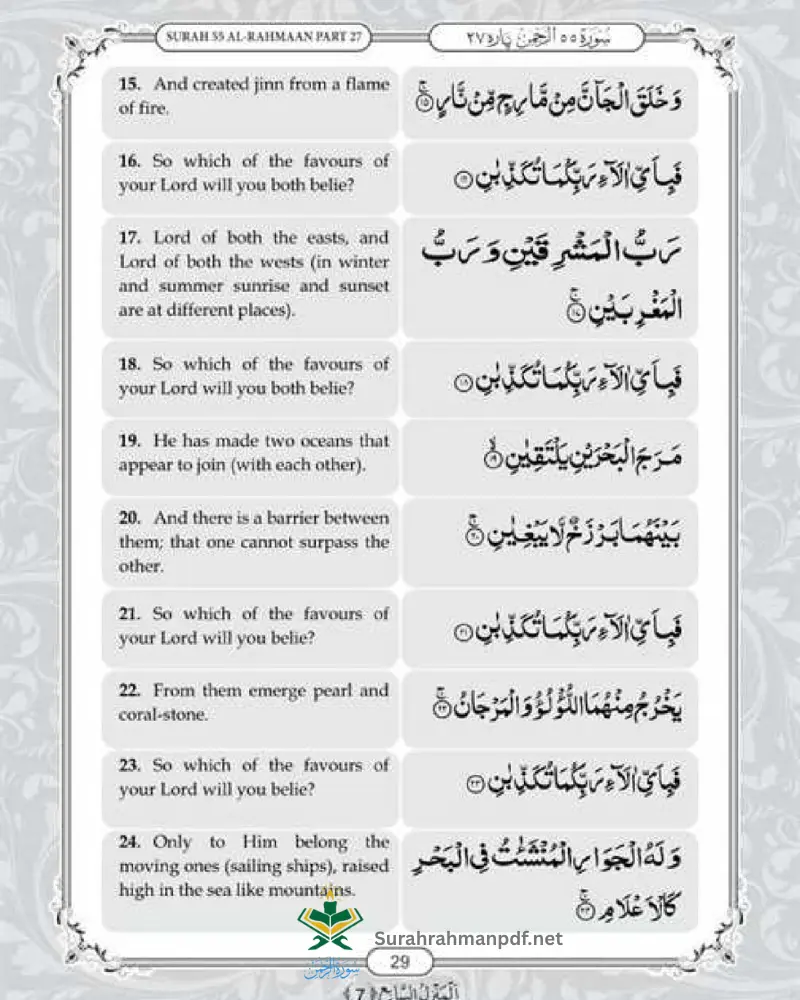 SURAH 55 AL-RAHMAAN PART 27
سُوْرَة ٥٥ الرَّحْمٰن پاره ٢٧
15. And created jinn from a flame
of fire.
وَ خَلَقَ الْجَآنَّ مِنْ مَّارِجٍ مِّنْ نَّارٍ ۚ﴿١٥﴾
16. So which of the favours of
your Lord will you both belie?
فَبِاَيِّ اٰلَآءِ رَبِّكُمَا تُكَذِّبٰنِ ﴿١٦﴾
17. Lord of both the easts, and
Lord of both the wests (in winter
and summer sunrise and sunset
are at different places).
رَبُّ الْمَشْرِقَيْنِ وَ رَبُّ
الْمَغْرِبَيْنِ ۚ﴿١٧﴾
18. So which of the favours of
your Lord will you both belie?
فَبِاَيِّ اٰلَآءِ رَبِّكُمَا تُكَذِّبٰنِ ﴿١٨﴾
19. He has made two oceans that
appear to join (with each other).
مَرَجَ الْبَحْرَيْنِ يَلْتَقِيٰنِ ۙ﴿١٩﴾
20. And there is a barrier between
them; that one cannot surpass the
other.
بَيْنَهُمَا بَرْزَخٌ لَّا يَبْغِيٰنِ ۚ﴿٢٠﴾
21. So which of the favours of
your Lord will you belie?
فَبِاَيِّ اٰلَآءِ رَبِّكُمَا تُكَذِّبٰنِ ﴿٢١﴾
22. From them emerge pearl and
coral-stone.
يَخْرُجُ مِنْهُمَا اللُّؤْلُؤُ وَ الْمَرْجَانُ ۚ﴿٢٢﴾
23. So which of the favours of
your Lord will you belie?
فَبِاَيِّ اٰلَآءِ رَبِّكُمَا تُكَذِّبٰنِ ﴿٢٣﴾
24. Only to Him belong the
moving ones (sailing ships), raised
high in the sea like mountains.
وَ لَهُ الْجَوَارِ الْمُنْشَئٰتُ فِي الْبَحْرِ
كَالْاَعْلَامِ ۚ﴿٢٤﴾
Surahrahmanpdf.net
سورة الرحمن
29
اَلْمَنْزِلُ السَّابِع ﴿7﴾